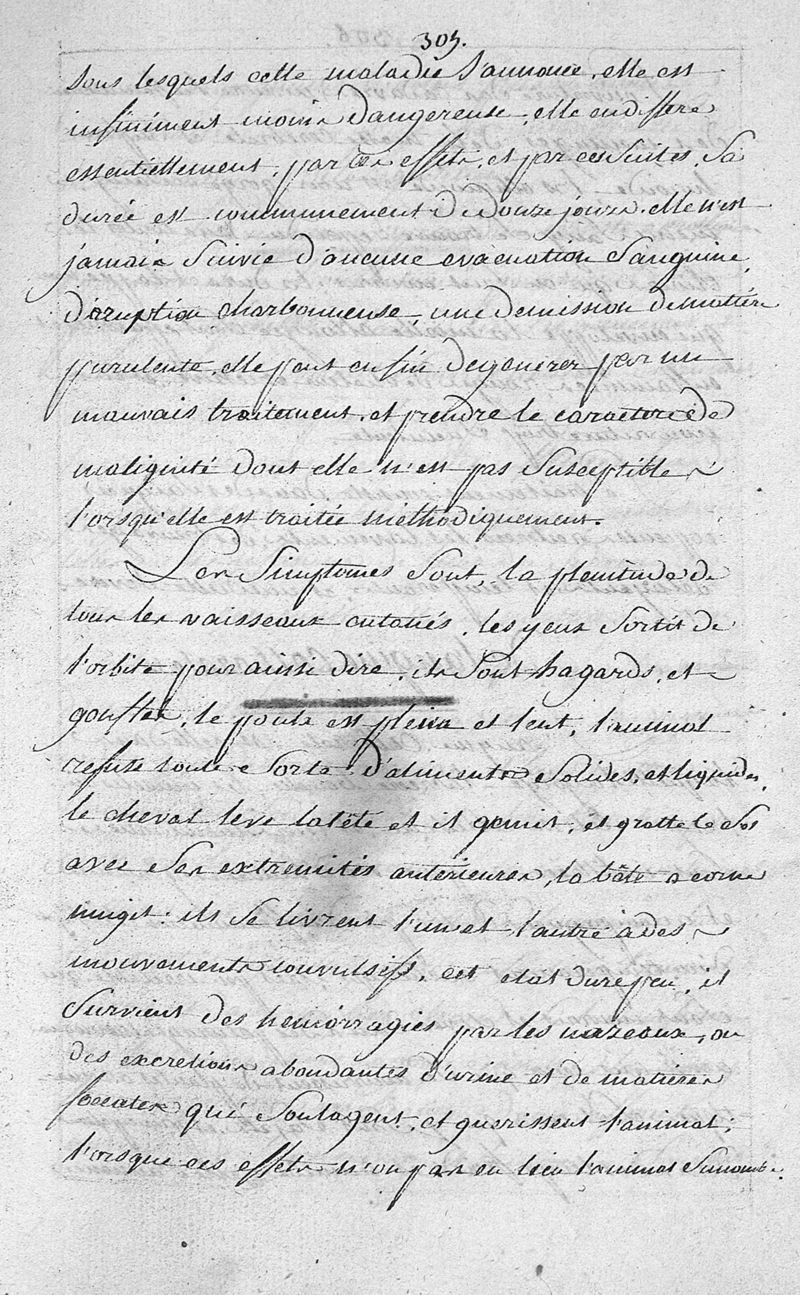 305.
sous lesquels cette maladie s'annonce, elle est
infiniment moins dangereuse, elle en differe
essentiellement, par ses effets, et par ces suites, sa
durée est communement de douze jours, elle n'est
jamais suivie d'aucune evacuation sanguine,
d'eruption charbonneuse, une demission de matiere
purulente, elle peut enfin degenerer par un
mauvais traitement, et prendre le caractere de
malignité dont elle n'est pas susceptible
lorsqu'elle est traitée méthodiquement.
Les Simptomes sont, la plenitude de
tous les vaisseaux cutanés, les yeux sortit de
l'orbite pour ainsi dire, ils sont hagards, et
gonflés, le pouls est plein et lent, l'animal
refuse toute sorte d'aliments solides, et liquides,
le cheval leve la tête et il gemit, et gratte le sol
avec ses extremités antérieures, la bête a corne
mugit: ils se livrent l'un et l'autre a des
mouvements convulsifs, cet etat dure peu, il
survient des hemorragies par les nazeaux, ou
des excretions abondantes d'urine et de matieres
fecales qui soulagent, et guerissent l'animal;
lorsque ces effets n'on pas eu lieu l'animal sucombe.